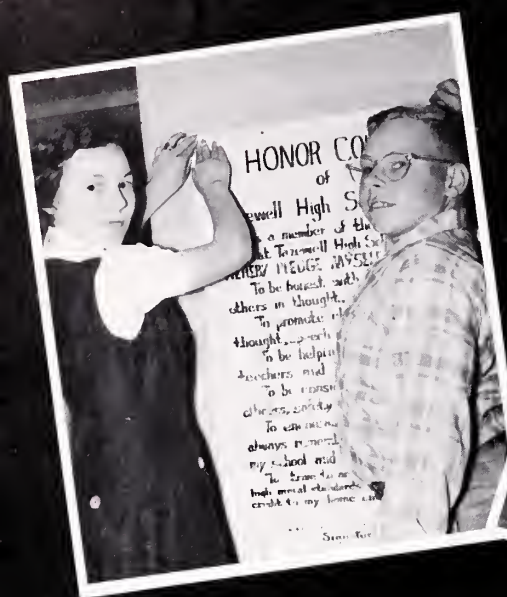 HONOR CO
of
ewell High S
a member of the
at Tazewell High Sch
HEREBY PLEDGE MYSELF
To be honest with
others in thought,
To promote
thought, speech
To be helpful
teachers and
To be consi
others, safety
To encourage
always rememb
my school and
To
high moral standards
credit to my home and
Signature